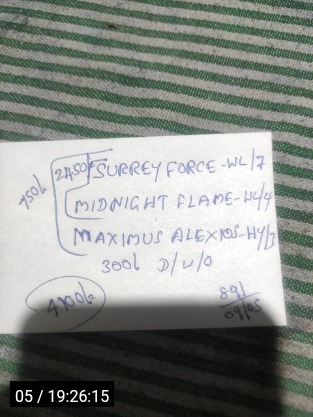 2450/- SURREY FORCE-HL/7
750/- MIDNIGHT FLAME-HL/4
MAXIMUS ALEXIOS-HY/3
300/- D/W/O
4700/-
891
09/05
05 / 19:26:15